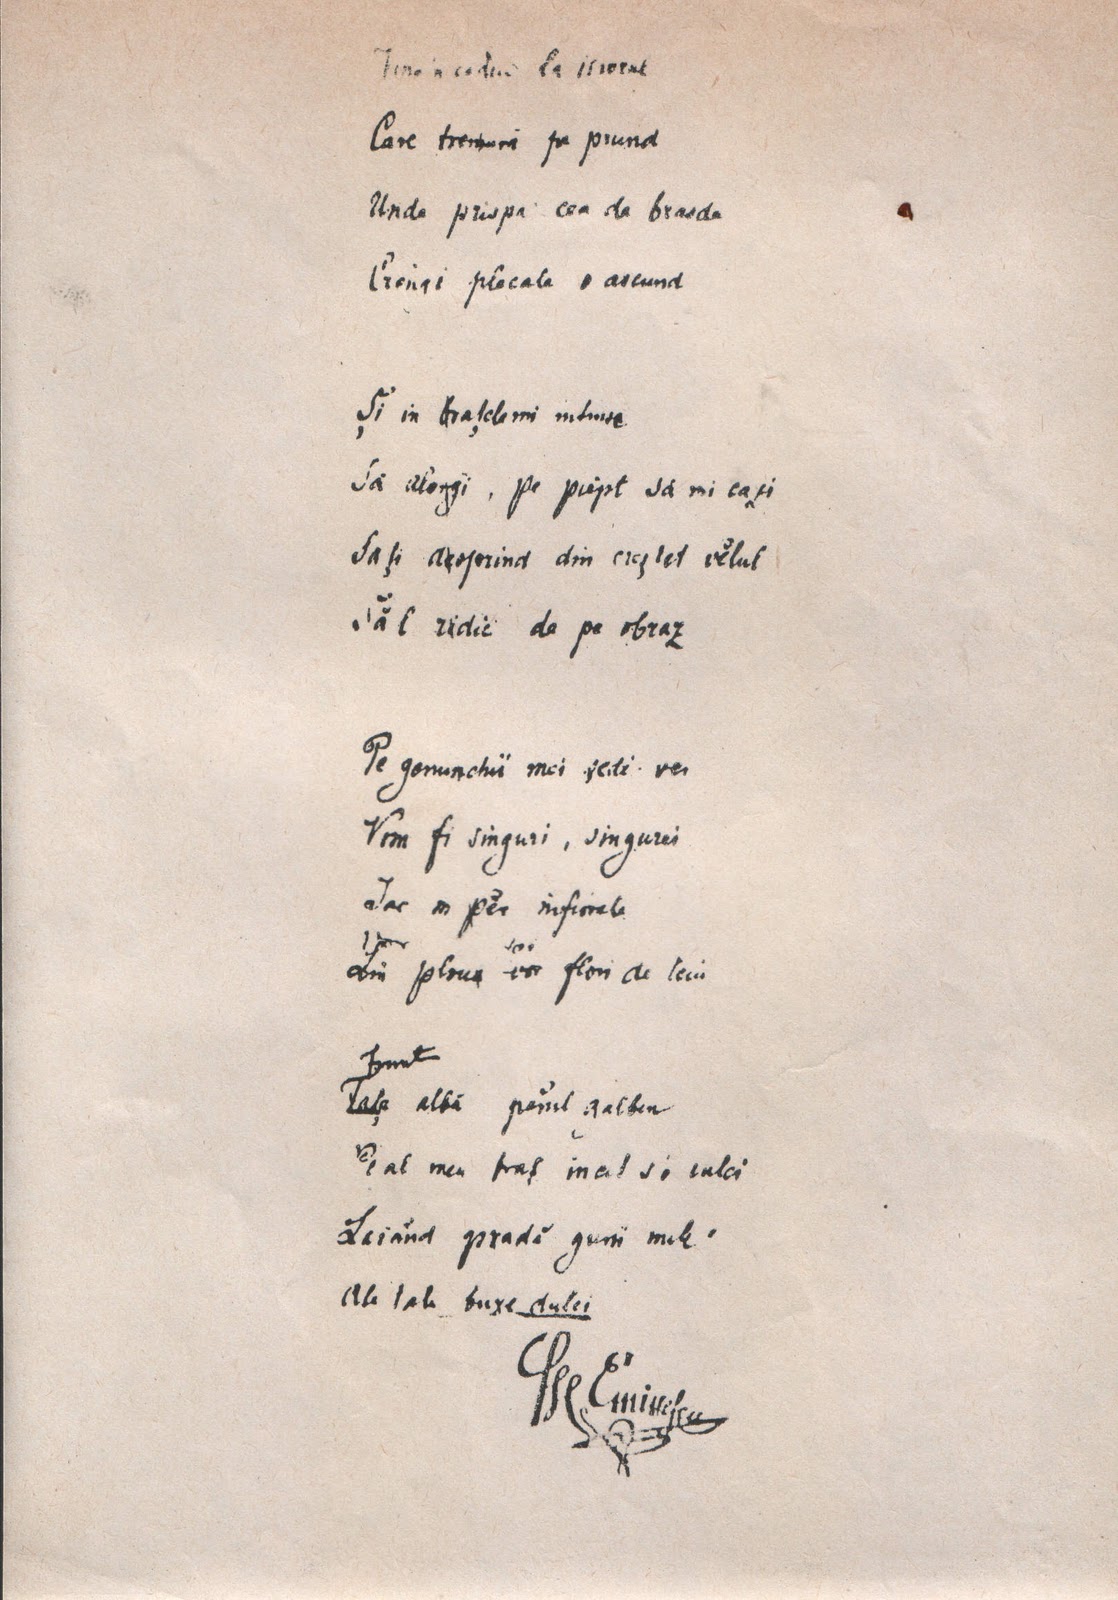 Vino 'n codru la isvorul
Care tremură pe prund
Unde prispa cea de brasde
Crengi plecate o ascund
Și in brațele mi intinse
Să alergi, pe piept să mi cazi
Să ți desprind din creștet vĕlul
Să l ridic de pe obraz
Pe genunchii mei ședé vei
Vom fi singuri, singurei
Iar in pĕr infiorate
Iți
Din ploua vor flori de teiu
Frunt
Fața albă pĕrul galben
Pe al meu braț incet s'o culci
Lăsănd pradă gurii mele
Ale tale buze dulci
M Eminescu